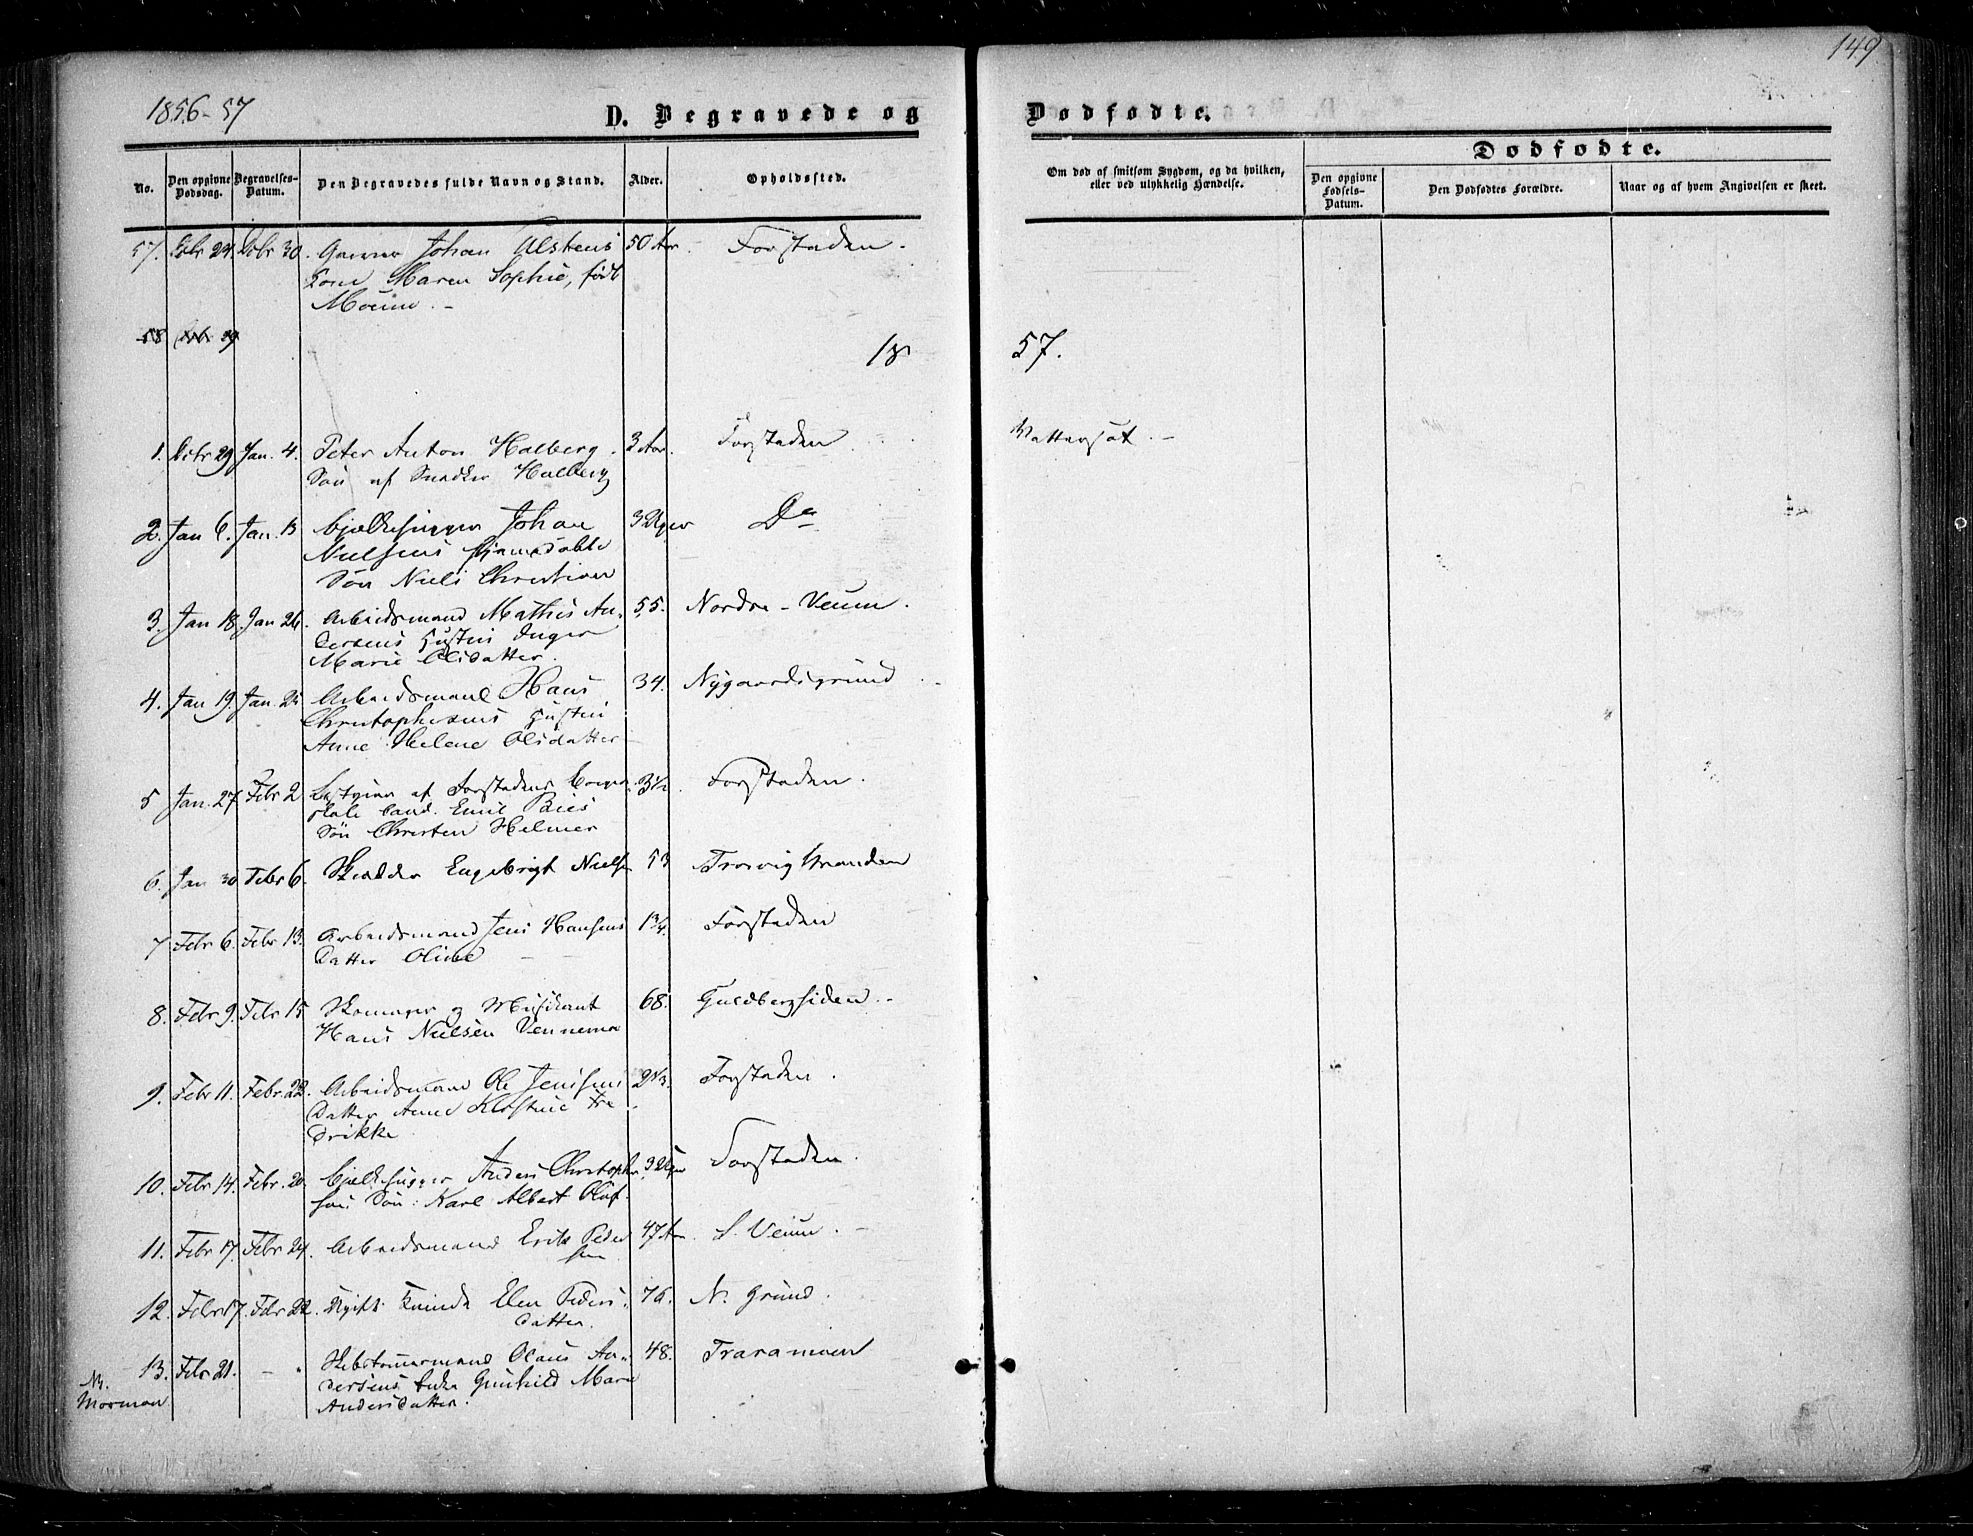 149
1856-57
D. Begravede og Dødfødte.
Dødfødte.
No.
Den opgivne Dødsdag.
Begravelses-Datum.
Den Begravedes fulde Navn og Stand.
Alder.
Opholdssted.
Om død af smitsom Sygdom, og da hvilken, eller ved ulykkelig Hændelse.
Den opgivne Fødsels-Datum.
Den Dødfødtes Forældre.
Naar og af hvem Angivelsen er skeet.
57. Dcbr 24. Dcbr 30. Johan Alstens 50 Aar Forstaden.
Kone Maren Sophie, født
58
18 57.
1. Dcbr 29 Jan. 4. Peter Anton Halberg. 3 Aar. Forstaden Vattersot.
Søn af Snedker Halberg
2. Jan 6. Jan. 13 Bjelkehugger Johan 3 Uger Do
Nielsens
Søn Niels Christian
3. Jan 18. Jan 26. Arbeidsmand Mathis An- 55. Nordre-Veum.
dersens Hustru Inger
Marie Olsdatter.
4. Jan 19. Jan. 25 Arbeidsmand Hans 34. Nygaardsgrund
Christophersens Hustru
Anne Helene Olsdatter
5 Jan. 27 Febr 2 af Forstadens 3½. Forstaden.
Cand. Emil
Søn Christen Helmer
6. Jan 30 Febr 6. Skrædder Engebrigt Nielsen 53 Trosvigstranden
7 Febr 6. Febr 13. Arbeidsmand Jens Hansens 1¾. Forstaden
Datter Oline
8. Febr 9. Febr 15 Skomager og Musikant 68. Guldbergsiden.
Hans Nielsen
9. Febr 11. Febr. 22. Arbeidsmand Ole Jensens Forstaden.
Datter Anne Kirstine Fre
drikke
10. Febr 14. Febr. 20. Bjelkehugger Anders Christopher- 3 Uger Forstaden.
sens Søn: Karl Albert Olaf.
11. Febr 17. Febr 24. Arbeidsmand Erik Peder 47 Aar. S. Veum.
sen
12. Febr 17. Febr 22. Ugift Kvinde Elen Peders. 76. N. Grund.
datter.
13. Febr 21. - " Skibstømmermand Olaus An- 48. Traramoen
dersens Enke Gunhild Marie
Andersdatter.
NB.
Mormon